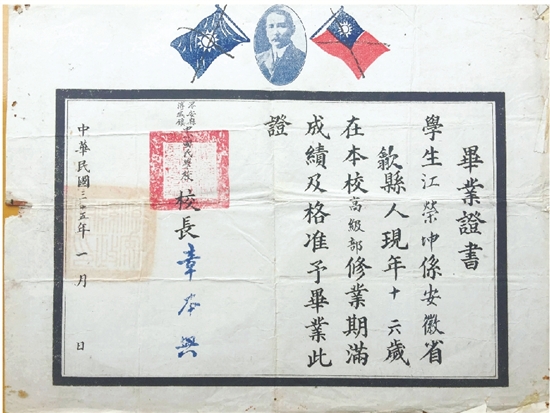 畢業證書
學生江榮坤係安徽省
歙縣人現年十六歲
在本校高級部修業期滿
成績及格准予畢業此
證
國民學校
校長章本興
中華民國三十五年一月 日